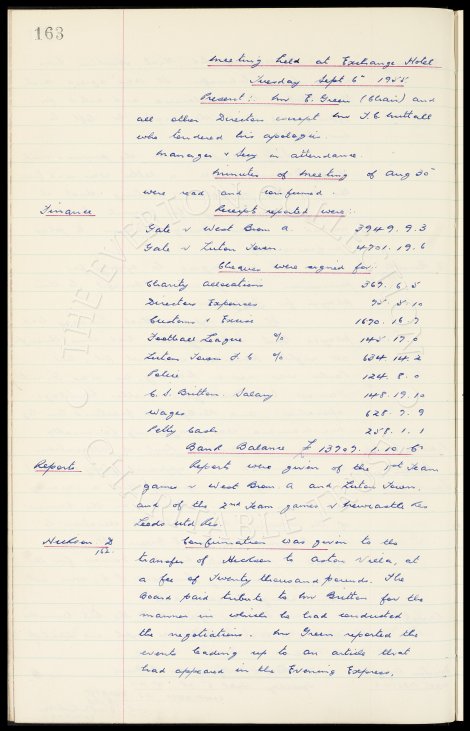 163
Meeting held at Exchange Hotel
Tuesday Sept 6th 1955
Present: Mr E. Green (Chair) and
all other Directors except Mr T.C. Nuttall
who tendered his apologies.
Manager & Secy in attendance.
Minutes of Meeting of Aug 30th
were read and confirmed.
Finance Receipts reported were:
Gate v West Brom A. 3949. 9. 3
Gate v Luton Town. 4701. 19. 6
Cheques were signed for:
Charity allocations 367. 6. 5
Directors Expenses 95. 5. 10
Customs & Excise 1690. 16. 7
Football League %
Luton Town F.C. % 634. 14. 2
Police 124. 8. 0
C.S. Britton. Salary 148. 19. 10
Wages 628. 7. 9
Petty Cash 258. 1. 1
Bank Balance £ 13707. 1. 10
Reports Report were given of the 1st Team
games v West Brom. A and Luton Town,
and of the 2nd Team games v Newcastle Res
Leeds Utd Res.
Hickson D Confirmation was given to the
162. transfer of Hickson to Aston Villa, at
a fee of Twenty thousand pounds. The
Board paid tribute to Mr Britton for the
manner in which he had conducted
the negotiations. Mr Green reported the
events leading up to an article that
had appeared in the Evening Express.
THE EVERTON COLLECTION
CHARITABLE TRUST